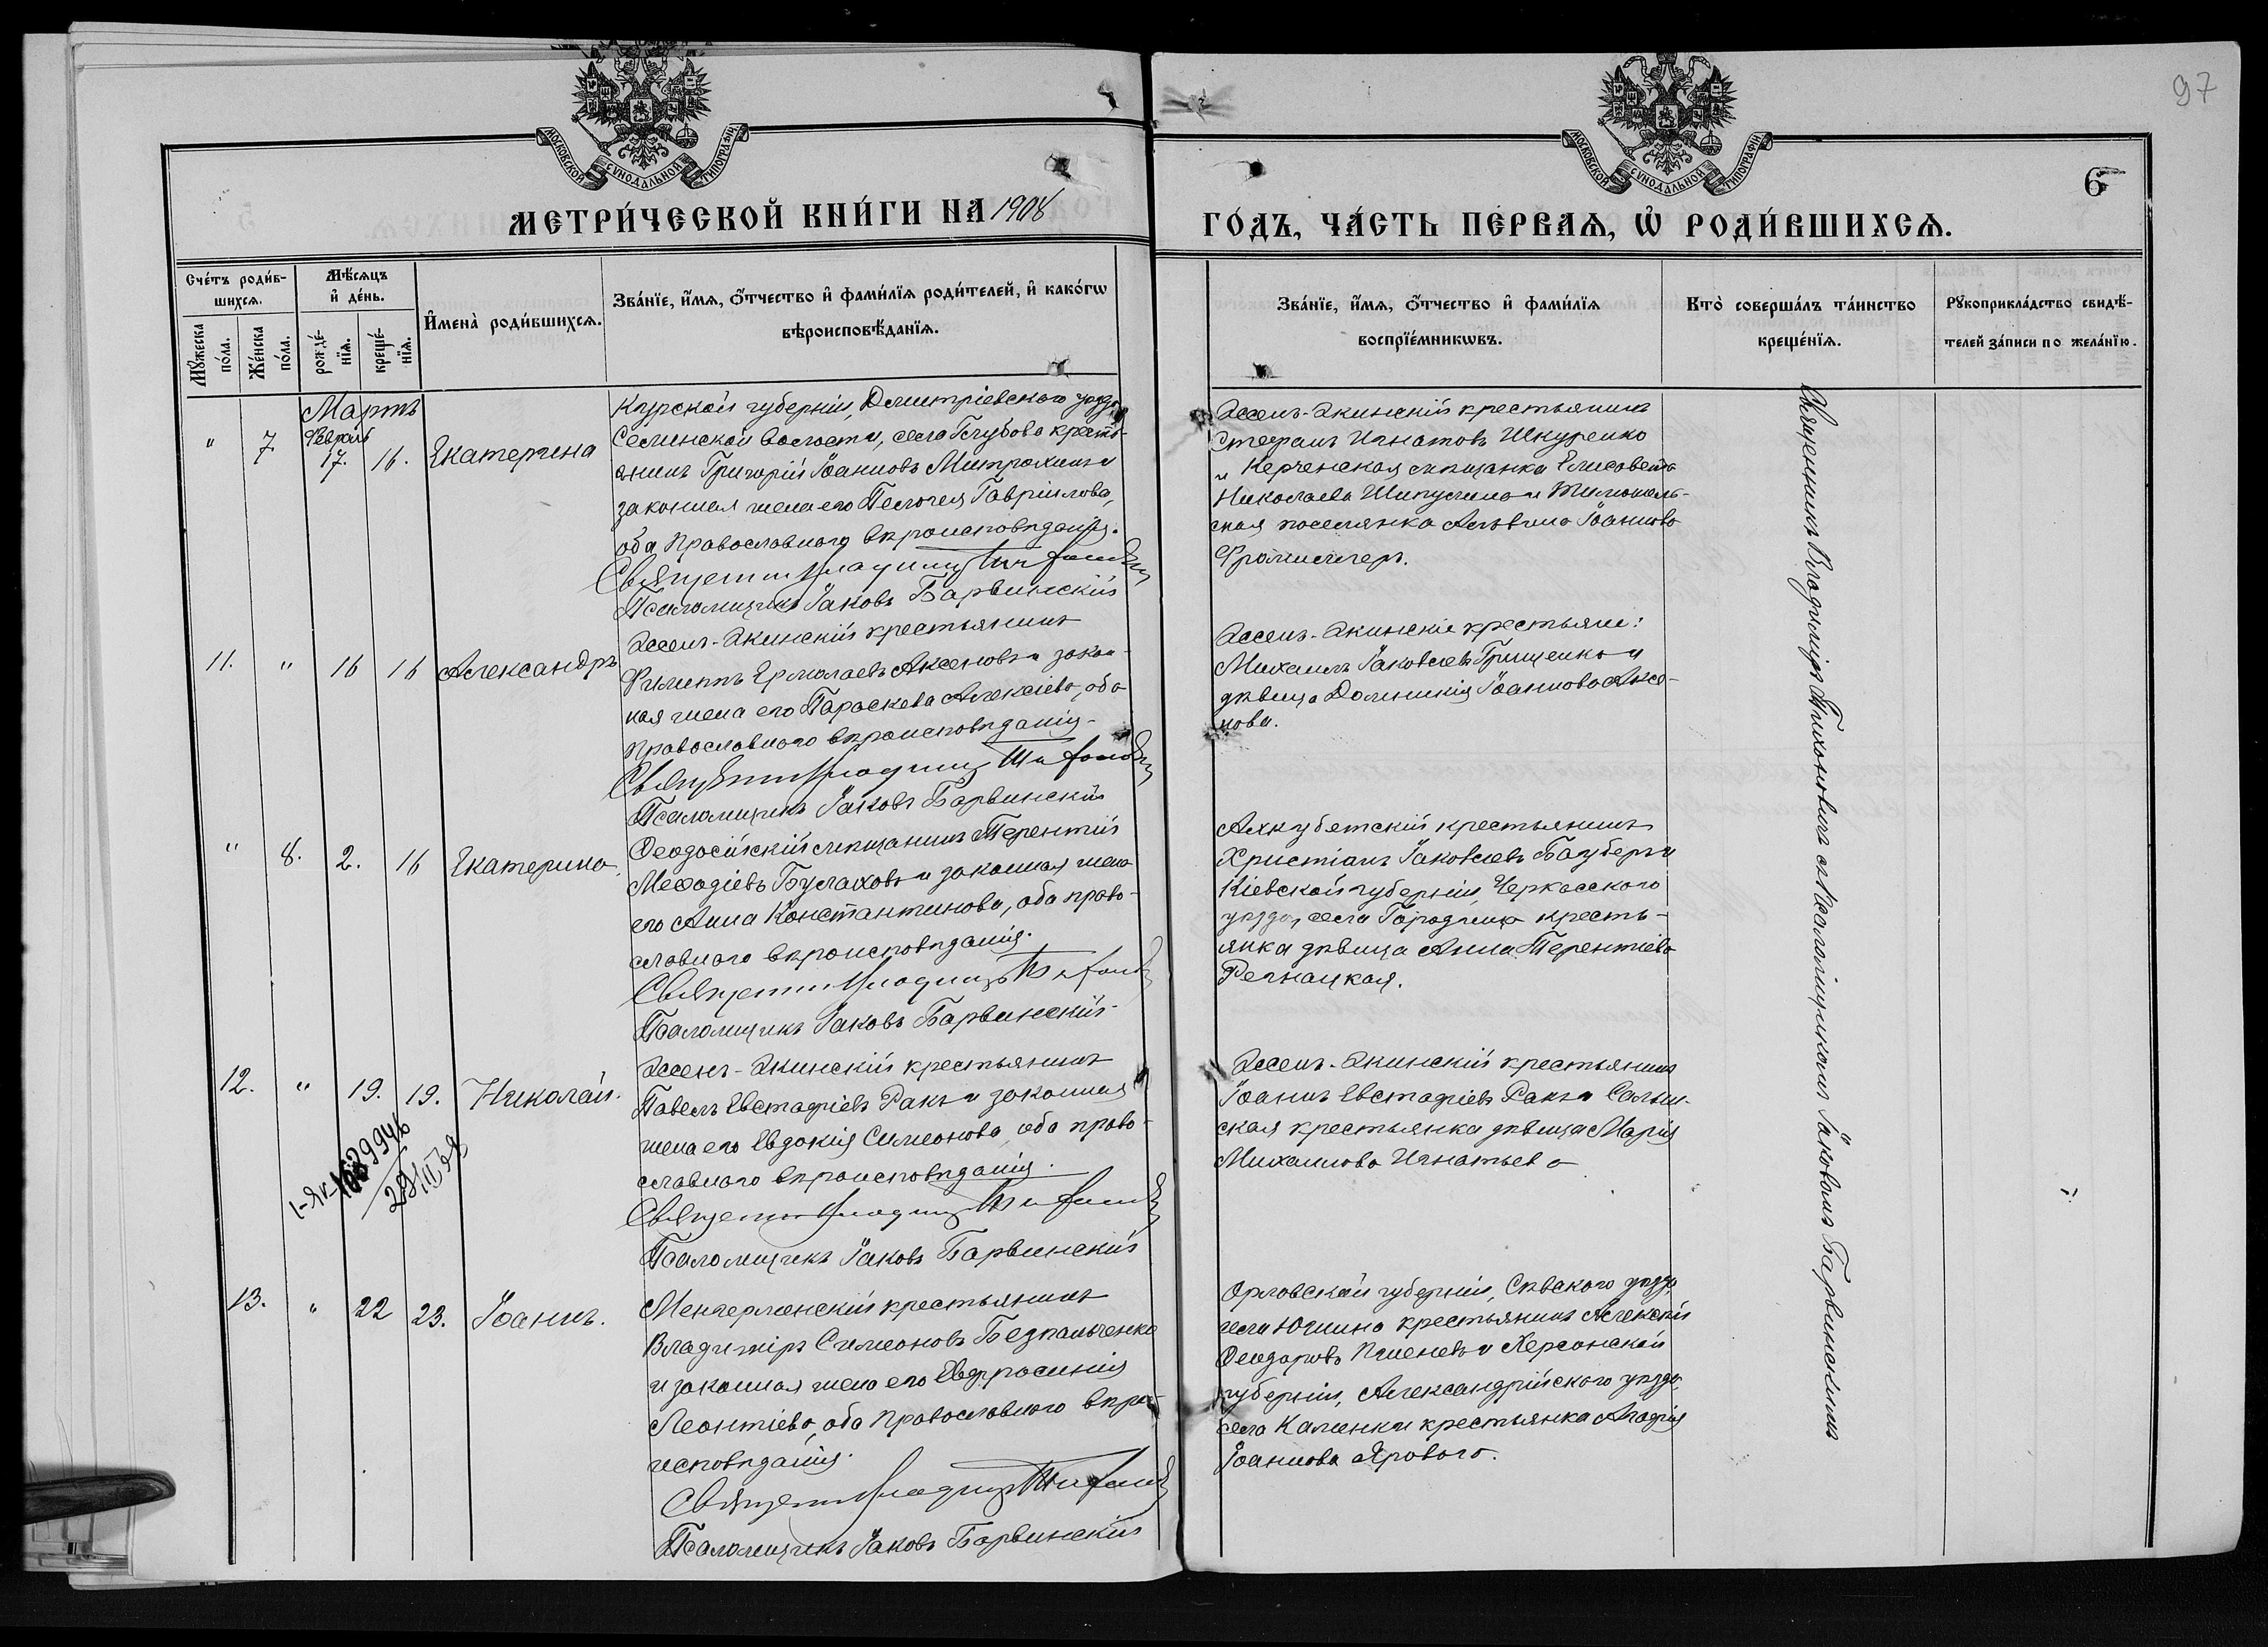 97
МОСКОВСКОЙ СѴНОДАЛЬНОЙ ТИПОГРАФІИ
МОСКОВСКОЙ СѴНОДАЛЬНОЙ ТИПОГРАФІИ
6
МЕТРИ́ЧЕСКОЙ КНИ́ГИ НА 1908
ГО́ДЪ, ЧА́СТЬ ПЕ́РВАѦ, Ѡ҆ РОДИ́ВШИХСѦ.
Сче́тъ роди́в-
шихсѧ.
Мꙋ́жеска по́ла.
Же́нска по́ла.
Мѣ́сѧцъ
и҆ де́нь.
рожде́-
нїѧ.
креще́-
нїѧ.
И҆мена̀ роди́вшихсѧ.
Зва́нїе, и҆́мѧ, ѻ҆́тчество и҆ фами́лїѧ роди́телей, и҆ како́гѡ
вѣроисповѣ́данїѧ.
Зва́нїе, и҆́мѧ, ѻ҆́тчество и҆ фами́лїѧ
воспрїе́мникѡвъ.
Кто̀ соверша́лъ та́инство
креще́нїѧ.
Рꙋкоприкла́дство свидѣ́-
телей за́писи по жела́нїю.
Мартъ
" 7 Февраль
17. 16. Екатерина
Курской губерніи, Дмитріевского уѣзда,
Селинской волости, села Голубова кресть-
янинъ Григорій Іоанновъ Митрохинъ и
законная жена его Пелагея Гавріилова,
оба Православнаго вѣроисповѣданія.
Священникъ Владимиръ
Псаломщикъ Іаковъ Барвинскій
Ассенъ-Экинскій крестьянинъ
Стефанъ Игнатовъ Шкуренко
и Керченская мѣщанка Елисавета
Николаева Шипулина и
ская поселянка Іоаннова
11. " 16 16 Александръ
Ассенъ-Экинскій крестьянинъ
Филиппъ Ермолаевъ Аксеновъ и закон-
ная жена его Параскева Алексіева, оба
православнаго вѣроисповѣданія.
Священникъ Владимиръ
Псаломщикъ Іаковъ Барвинскій
Ассенъ-Экинскіе крестьяне:
Михаилъ Іаковлевъ Грищенко и
дѣвица Домникія Іоаннова Аксе-
нова.
" 8. 2. 16 Екатерина.
Ѳеодосійскій мѣщанинъ Терентій
Меѳодіевъ Буглаховъ и законная жена
его Анна Константинова, оба право-
славнаго вѣроисповѣданія.
Священникъ Владимиръ
Псаломщикъ Іаковъ Барвинскій
крестьянинъ
Христіанъ Іаковлевъ Бауберъ и
Кіевской губерніи, Черкасского
уѣзда, села Городища кресть-
янка дѣвица Анна Терентіева
12. " 19. 19. Николай.
29/III 99
Ассенъ-Экинскій крестьянинъ
Павелъ Евстафіевъ Ракъ и законная
жена его Евдокія Симеонова, оба право-
славнаго вѣроисповѣданія.
Священникъ Владимиръ
Псаломщикъ Іаковъ Барвинскій
Ассенъ-Экинскій крестьянинъ
Іоаннъ Евстафіевъ Ракъ и
ская крестьянка дѣвица Марія
Михаилова Игнатьева
13. " 22 23. Іоаннъ.
Менгерменскій крестьянинъ
Владиміръ Симеоновъ Безпальченко
и законная жена его Евфросинія
Леонтіева, оба православнаго вѣро-
исповѣданія.
Священникъ Владимиръ
Псаломщикъ Іаковъ Барвинскій
Орловской губерніи, Сѣвскаго уѣзда,
села Юшино крестьянинъ Алексѣй
Ѳеодоровъ и Херсонской
губерніи, Александрійского уѣзда,
села Каменки крестьянка Агафія
Іоаннова Ярового.
Священникъ Владиміръ Тихоновичъ съ псаломщикомъ Іаковомъ Барвинскимъ